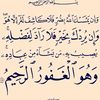 وَإِن يَمْسَسْكَ اللَّهُ بِضُرٍّ فَلَا كَاشِفَ لَهُ إِلَّا هُوَ
وَإِن يُرِدْكَ بِخَيْرٍ فَلَا رَادَّ لِفَضْلِهِ
يُصِيبُ بِهِ مَن يَشَاءُ مِنْ عِبَادِهِ
وَهُوَ الْغَفُورُ الرَّحِيمُ